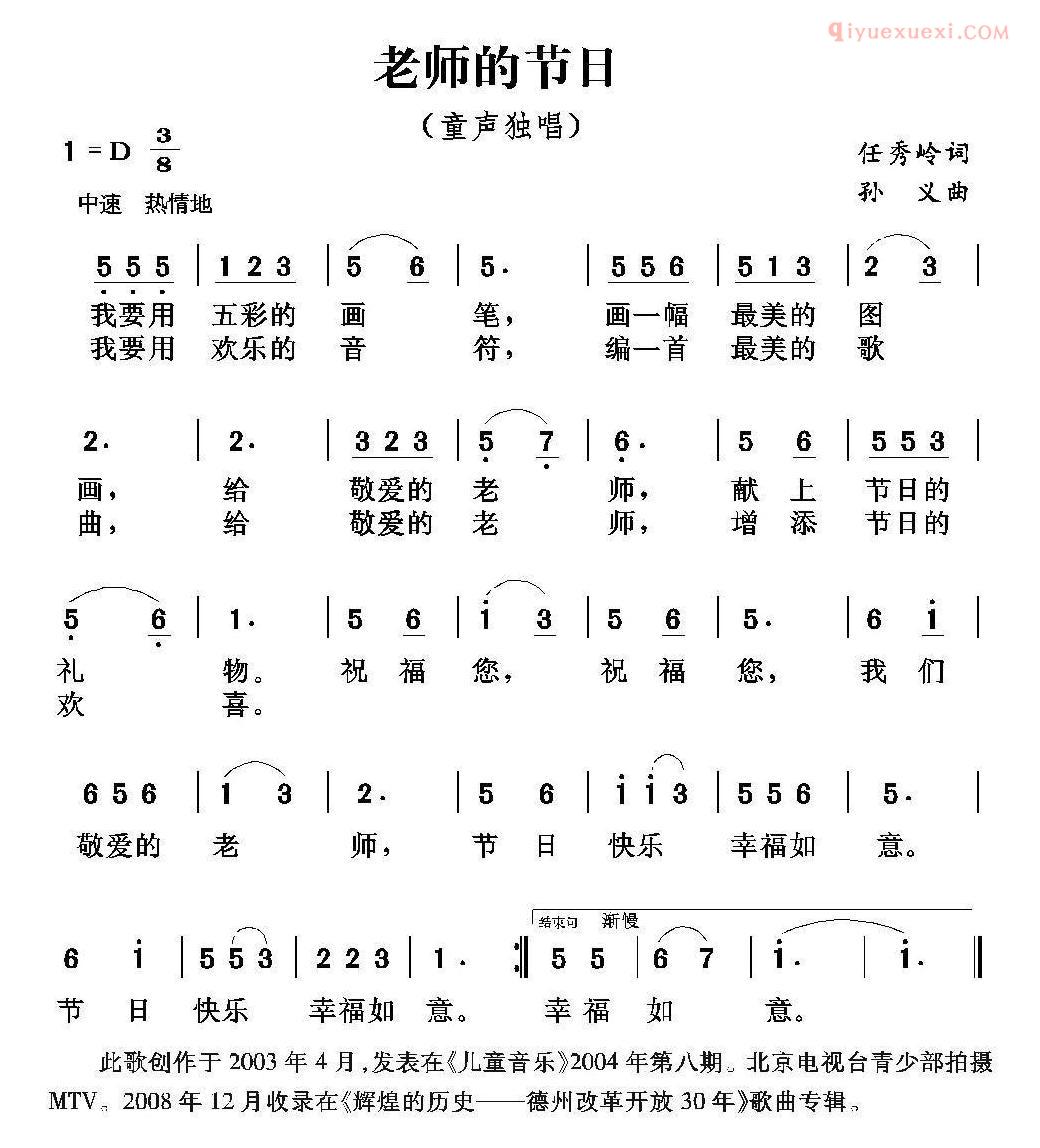 qiyuexuexi.COM
老师的节日
（童声独唱）
1 = D 3/8
任秀岭词
中速 热情地
孙 义曲
5 5 5 | 1 2 3 | 5 6 | 5. | 5 5 6 | 5 1 3 | 2 3 |
我要用 五彩的 画 笔， 画一幅 最美的 图
我要用 欢乐的 音 符， 编一首 最美的 歌
2. | 2. | 3 2 3 | 5 7 | 6. | 5 6 | 5 5 3 |
画， 给 敬爱的 老 师， 献 上 节日的
曲， 给 敬爱的 老 师， 增 添 节日的
5 6 | 1. | 5 6 | i 3 | 5 6 | 5. | 6 i |
礼 物。 祝 福 您， 祝 福 您， 我 们
欢 喜。
6 5 6 | 1 3 | 2. | 5 6 | i i 3 | 5 5 6 | 5. |
敬爱的 老 师， 节 日 快乐 幸福如 意。
结束句 渐慢
6 i | 5 5 3 | 2 2 3 | 1. :‖ 5 5 | 6 7 | i. | i. ‖
节 日 快乐 幸福如 意。 幸 福 如 意。
此歌创作于 2003 年 4 月，发表在《儿童音乐》2004 年第八期。北京电视台青少部拍摄
MTV。2008 年 12 月收录在《辉煌的历史——德州改革开放 30 年》歌曲专辑。